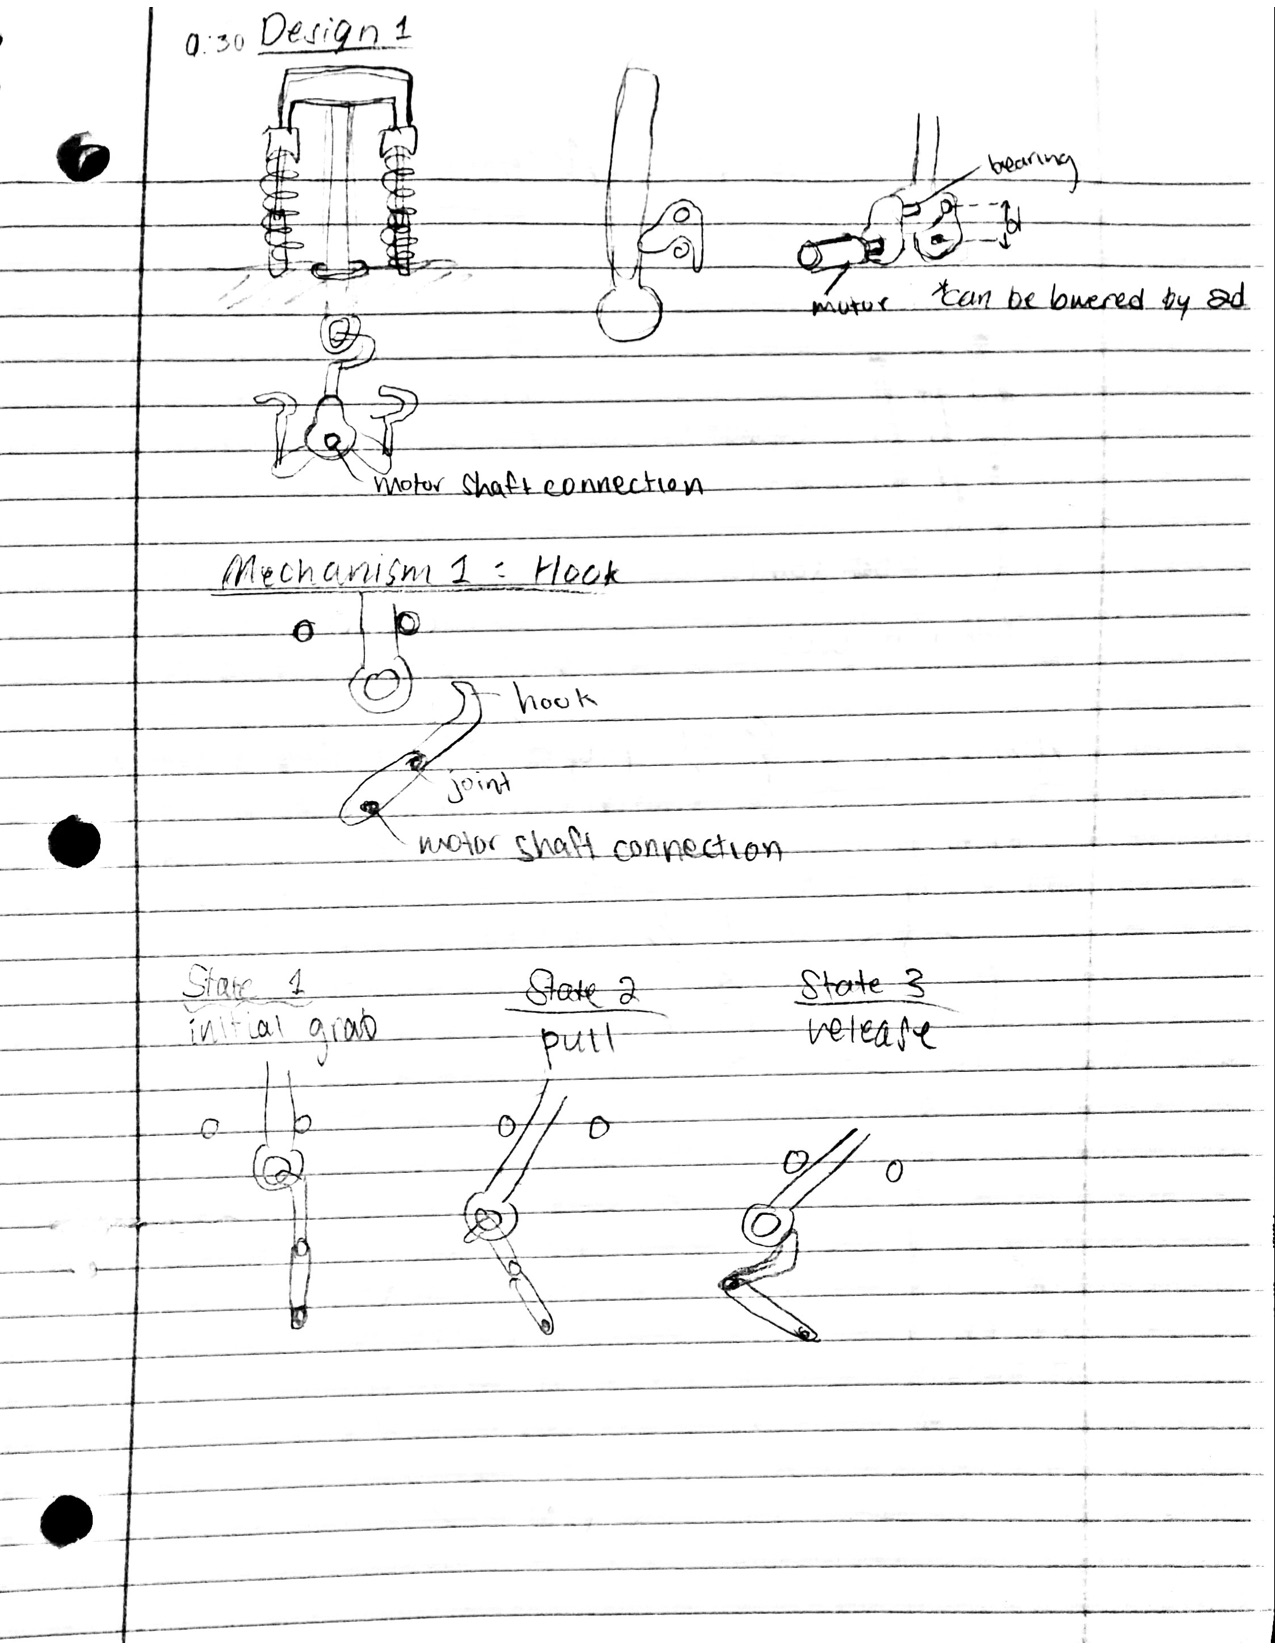 0:30 Design 1
bearing
d
motor *can be lowered by 2d
motor shaft connection
Mechanism 1 : Hook
hook
joint
motor shaft connection
State 1 State 2 State 3
initial grab pull release